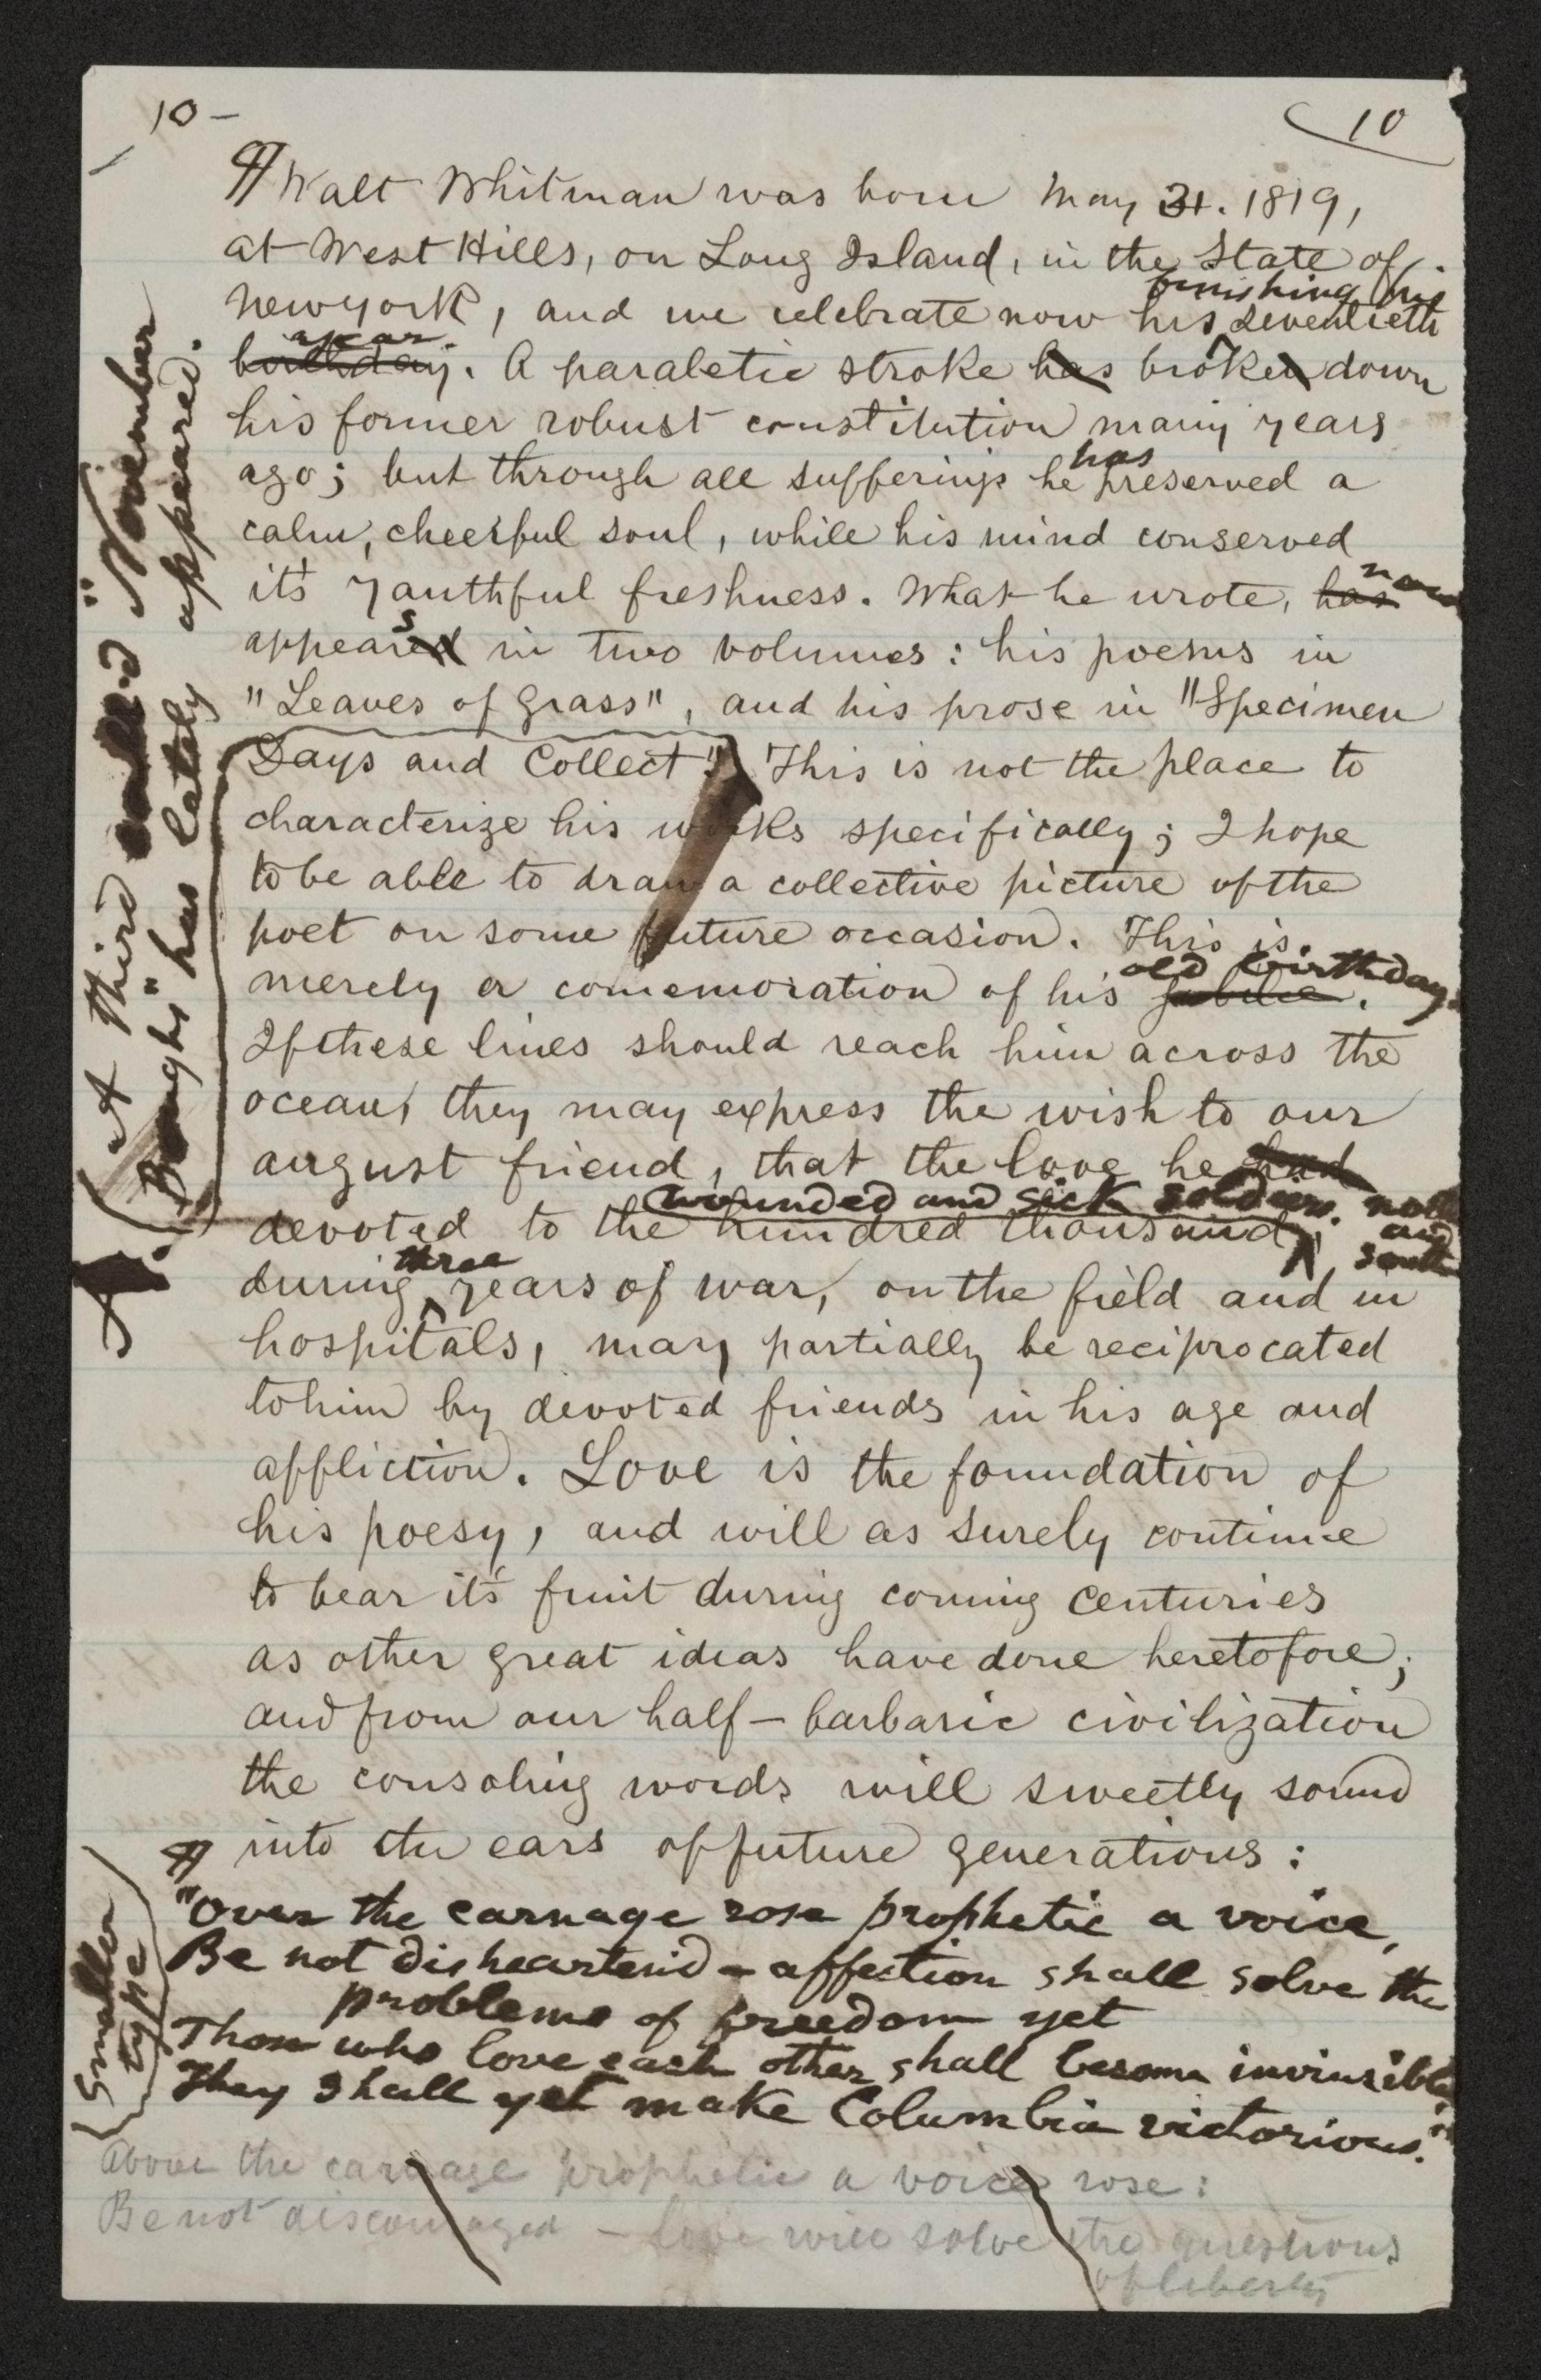 10 –
10
¶ Walt Whitman was born May 31. 1819,
at West Hills, on Long Island, in the State of
finishing his
New York, and we celebrate now his seventieth
year.
birthday. A paraletic stroke has broken down
his former robust constitution many years
has
ago; but through all sufferings he preserved a
calm, cheerful soul, while his mind conserved
now
it's youthful freshness. What he wrote, has
s
appeared in two volumes: his poems in
"Leaves of Grass", and his prose in "Specimen
Days and Collect". This is not the place to
characterize his works specifically; I hope
to be able to draw a collective picture of the
poet on some future occasion. This is
old birthday.
merely a comemoration of his jubilee.
If these lines should reach him across the
ocean, they may express the wish to our
august friend, that the love he had
wounded and sick soldiers. north
and
south
devoted to the hundred thousand,
three
during years of war, on the field and in
hospitals, may partially be reciprocated
to him by devoted friends in his age and
affliction. Love is the foundation of
his poesy, and will as surely continue
to bear it's fruit during coming centuries
as other great ideas have done heretofore;
and from our half-barbaric civilization
the consoling words will sweetly sound
into the ears of future generations:
¶
"Over the carnage rose prophetic a voice,
Be not dishearten'd – affection shall solve the
problems of freedom yet
Those who love each other shall become invincible,
They shall yet make Columbia victorious."
Above the carnage prophetic a voice rose:
Be not discouraged – love will solve the questions
of liberty
A third called "November
Boughs" has lately appeared.
Smaller
type